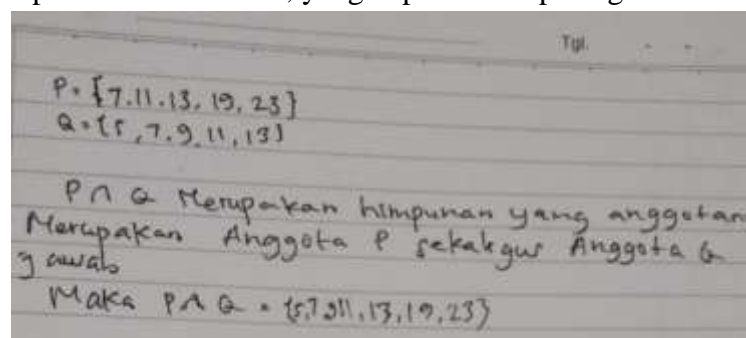 Tgl.
P = {7.11.13, 19, 23}
Q = {5, 7.9, 11, 13}
P ∩ Q Merupakan himpunan yang anggotan
Merupakan Anggota P sekaligus Anggota Q
Jawab
Maka P ∩ Q = {5,7,9,11,13,19,23}